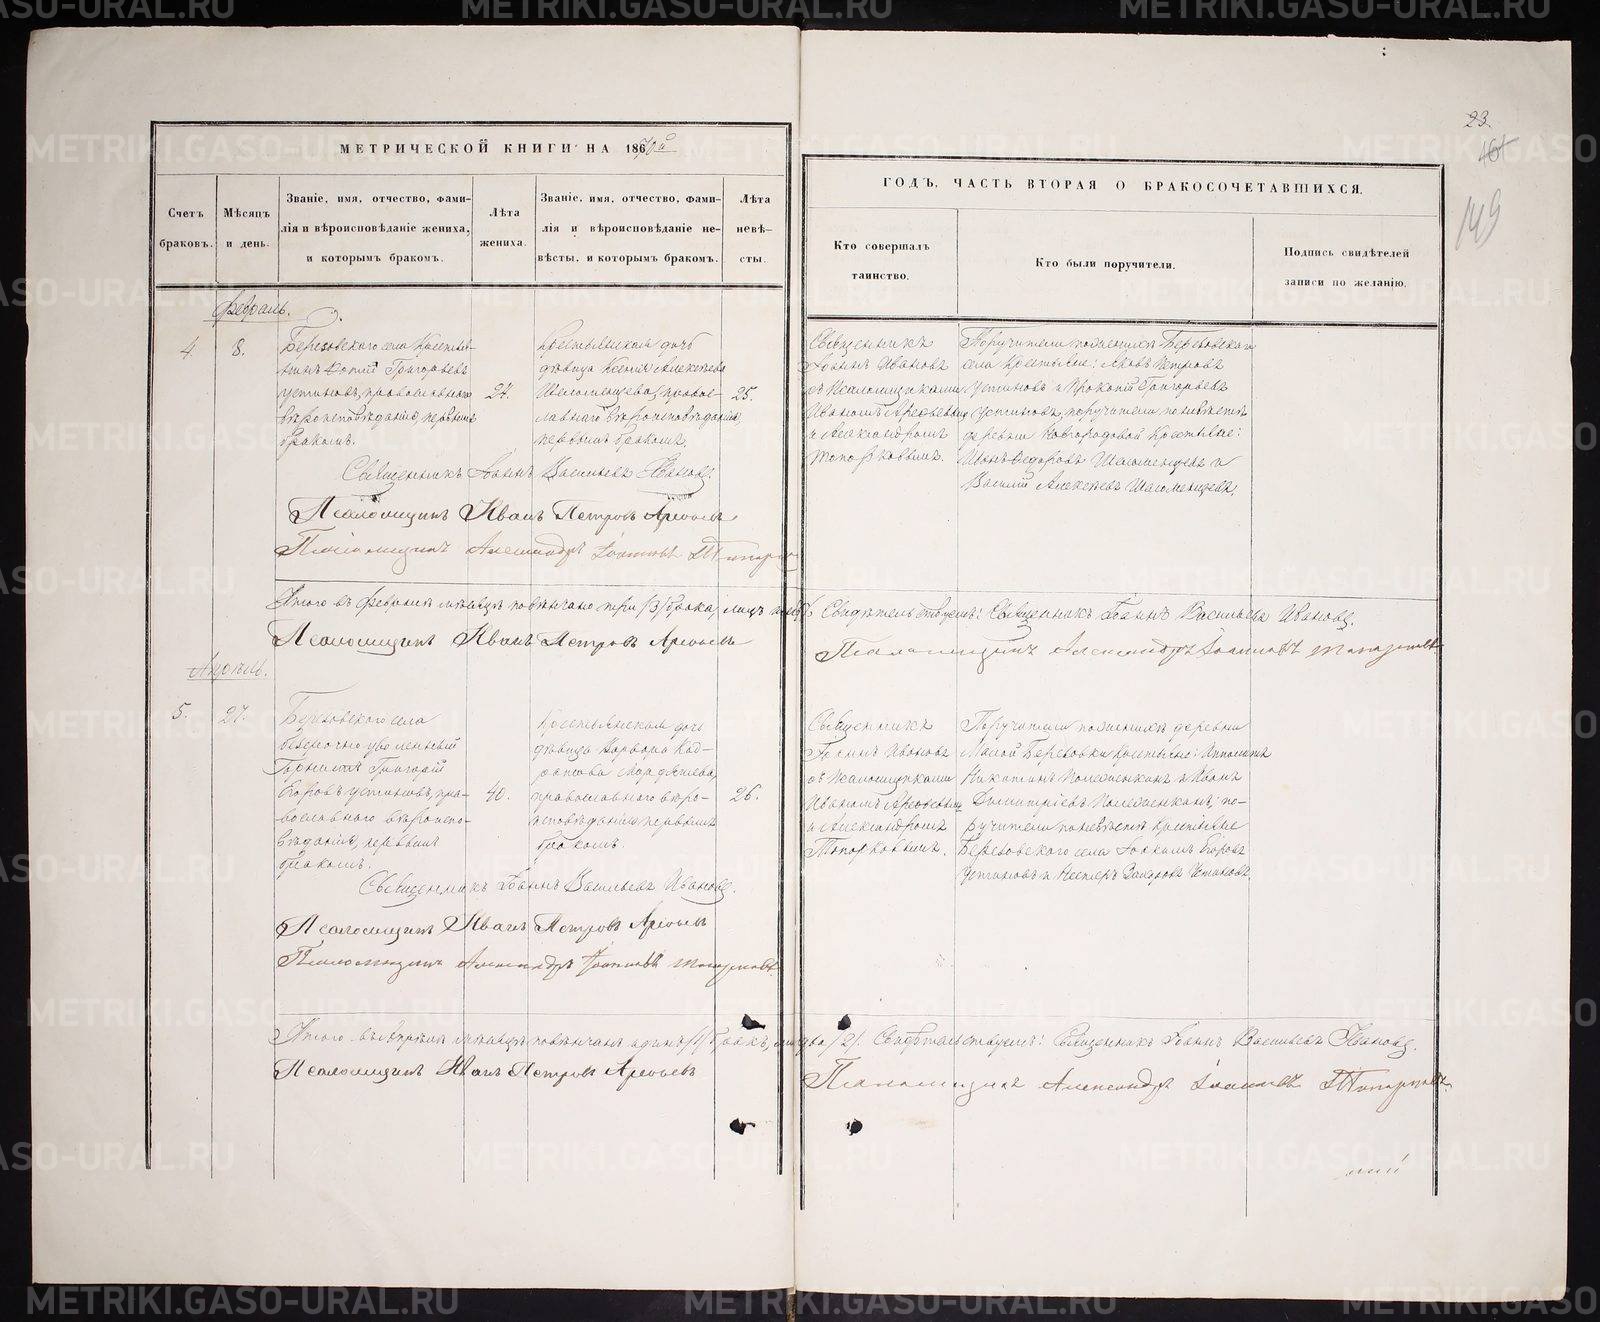 МЕТРИЧЕСКОЙ КНИГИ НА 1870й
Счетъ браковъ.
Мѣсяцъ и день.
Званіе, имя, отчество, фами-
лія и вѣроисповѣданіе жениха,
и которымъ бракомъ.
Лѣта
жениха.
Званіе, имя, отчество, фами-
лія и вѣроисповѣданіе не-
вѣсты, и которымъ бракомъ.
Лѣта
невѣ-
сты.
Февраль.
4.
8.
Березовскаго села Крестья-
нинъ Григорьевъ
Устиновъ, православнаго
вѣроисповѣданія, первымъ
бракомъ.
24.
Крестьянская дочь
дѣвица Ксенія Алексѣева
Шаломенцева, правос-
лавнаго вѣроисповѣданія,
первымъ бракомъ.
25.
Священникъ Іоаннъ Васильевъ Ивановъ.
Псаломщикъ Иванъ Петровъ Арефьевъ
Псаломщикъ Александръ Іоанновъ Топорковъ
Итого въ Февралѣ мѣсяцѣ повѣнчано три /3/ брака, лицъ
Псаломщикъ Иванъ Петровъ Арефьевъ
Апрѣль.
5.
27.
Березовскаго села
безсрочно уволенный
Григорій
Егоровъ Устиновъ, пра-
вославнаго вѣроиспо-
вѣданія, первымъ
бракомъ.
40.
Крестьянская дочь
дѣвица Варвара
православнаго вѣро-
исповѣданія первымъ
бракомъ.
26.
Священникъ Іоаннъ Васильевъ Ивановъ.
Псаломщикъ Иванъ Петровъ Арефьевъ
Псаломщикъ Александръ Іоанновъ Топорковъ
Итого въ Апрѣлѣ мѣсяцѣ повѣнчанъ одинъ /1/ бракъ, лицъ два /2/.
Псаломщикъ Иванъ Петровъ Арефьевъ
23.
149
ГОДЪ, ЧАСТЬ ВТОРАЯ О БРАКОСОЧЕТАВШИХСЯ.
Кто совершалъ
таинство.
Кто были поручители.
Подпись свидѣтелей
записи по желанію.
Священникъ
Іоаннъ Ивановъ
съ Псаломщиками
Иваномъ Арефьевымъ
и Александромъ
Топорковымъ.
Поручители по женихѣ Березовскаго
села крестьяне: Яковъ Петровъ
Устиновъ и Прокопій Григорьевъ
Устиновъ, поручители по невѣстѣ
деревни Новгородовой Крестьяне:
Иванъ Федоровъ Шаломенцевъ и
Василій Алексѣевъ Шаломенцевъ.
Свидѣтельствуемъ: Священникъ Іоаннъ Васильевъ Ивановъ.
Псаломщикъ Александръ Іоанновъ Топорковъ
Священникъ
Іоаннъ Ивановъ
съ Псаломщиками
Иваномъ Арефьевымъ
и Александромъ
Топорковымъ.
Поручители по женихѣ деревни
Малой Березовки крестьяне:
Никитинъ и Иванъ
Димитріевъ по-
ручители по невѣстѣ крестьяне
Березовскаго села Іоакимъ Егоровъ
Устиновъ и Нестеръ Устиновъ.
Свидѣтельствуемъ: Священникъ Іоаннъ Васильевъ Ивановъ.
Псаломщикъ Александръ Іоанновъ Топорковъ.
METRIKI.GASO-URAL.RU